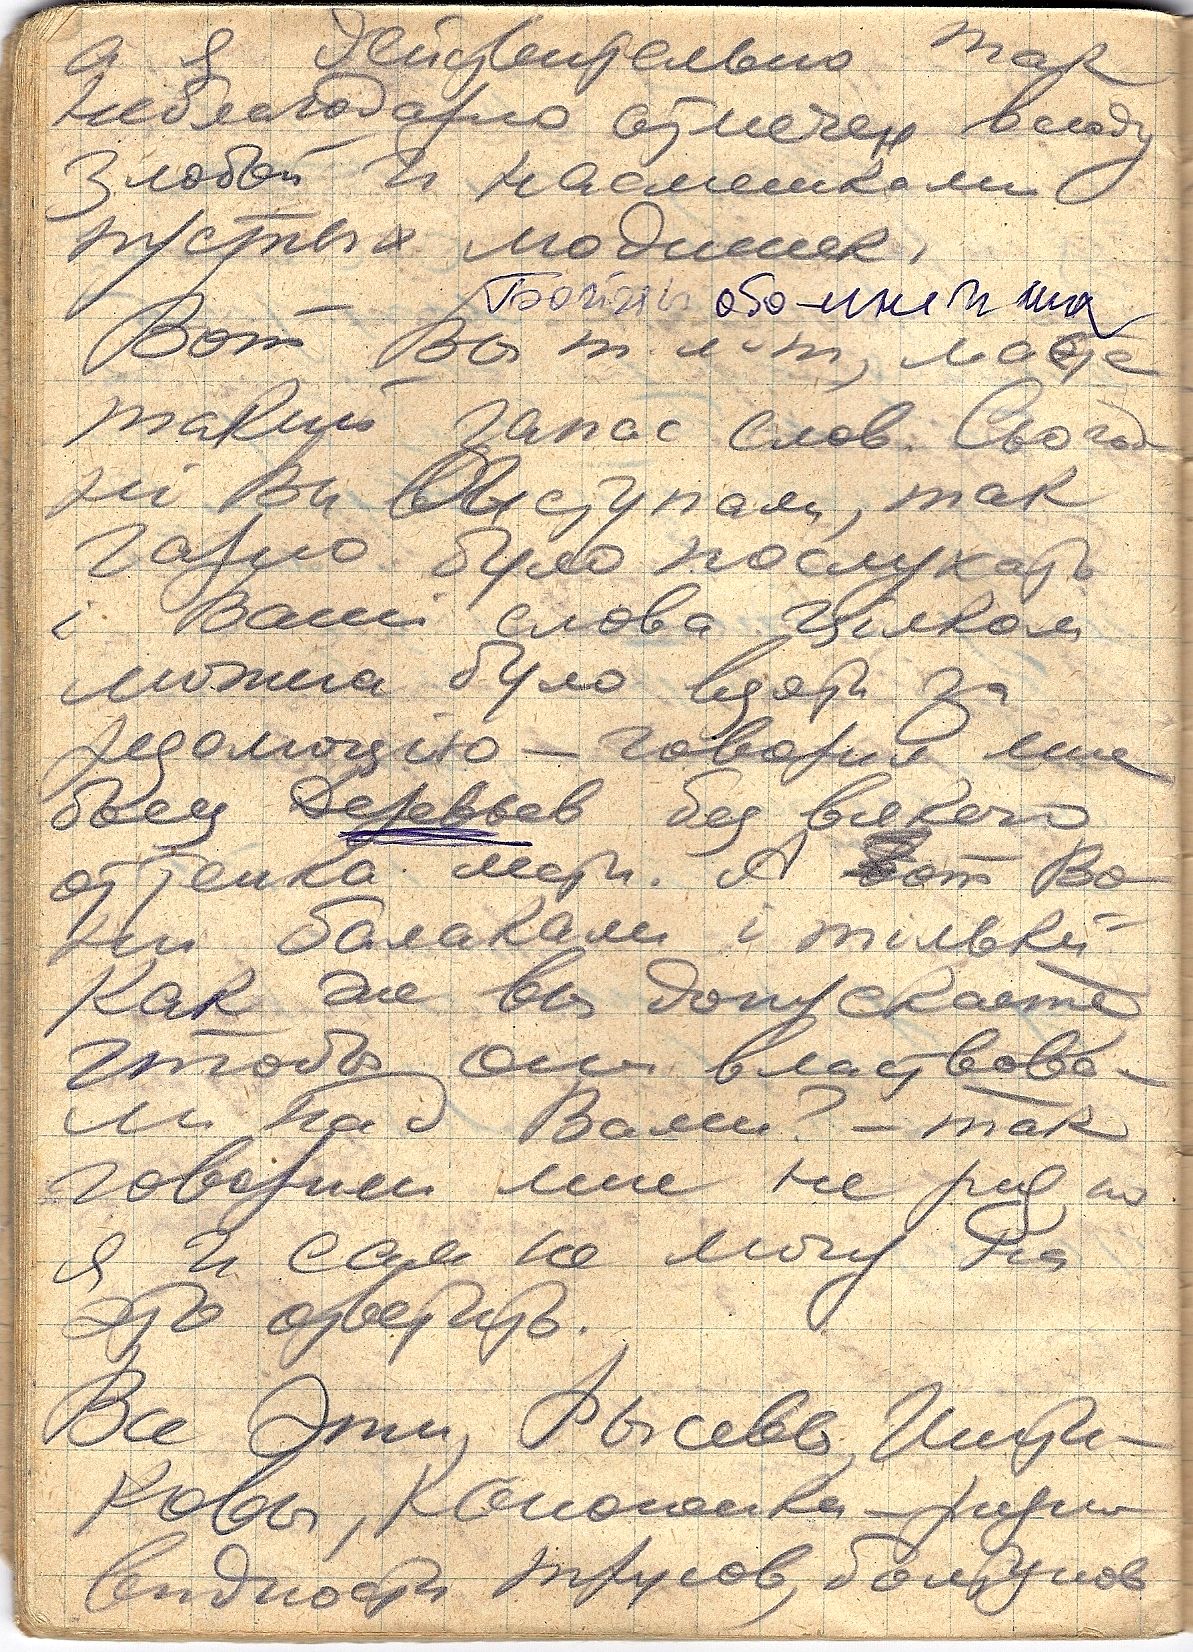 а я действительно так
неблагодарно отмечен всюду
злобой и насмешками
пустых людишек.
Бойцы обо мне и
Вот Вы т. л-т, маєте
такий запас слов. Сьогод-
ні Ви выступали, так
гарно було послухать
і Ваші слова цілком
можна було взяти за
резолюцію – говорил мне
боец Деревьев без всякого
оттенка лести. А вот Во-
ни балакали і тільки.
Как же вы допускаете
чтобы они властвова-
ли над Вами? – так
говорили мне не раз но
я и сам не могу на
это ответить.
Все эти, Рысевы,
ковы, Кононенки – разно-
видности трусов, болтунов